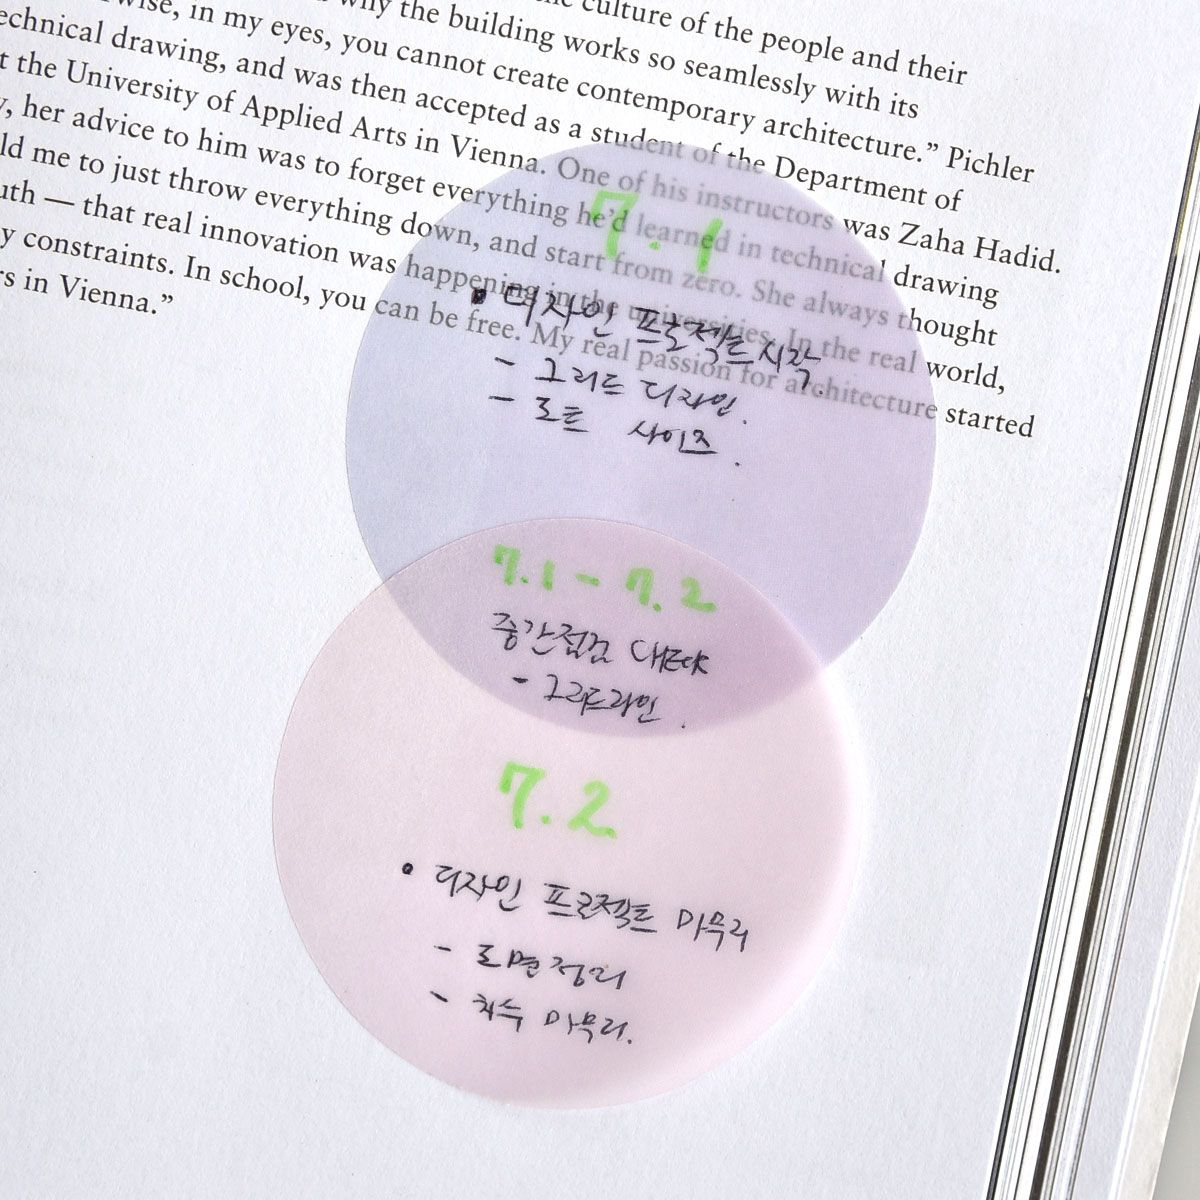 culture of the people and their
why the building works so seamlessly with its
in my eyes, you cannot create contemporary architecture.” Pichler
technical drawing, and was then accepted as a student of the Department of
the University of Applied Arts in Vienna. One of his instructors was Zaha Hadid.
her advice to him was to forget everything he’d learned in technical drawing
me to just throw everything down, and start from zero. She always thought
— that real innovation was happening in the universities. In the real world,
constraints. In school, you can be free. My real passion for architecture started
in Vienna.”
7.1
• 디자인 프로젝트 시작.
- 그리드 디자인.
- 도트 사이즈.
7.1 - 7.2
중간점검 CHECK
- 그리드라인.
7.2
• 디자인 프로젝트 마무리
- 도면정리
- 치수 마무리.